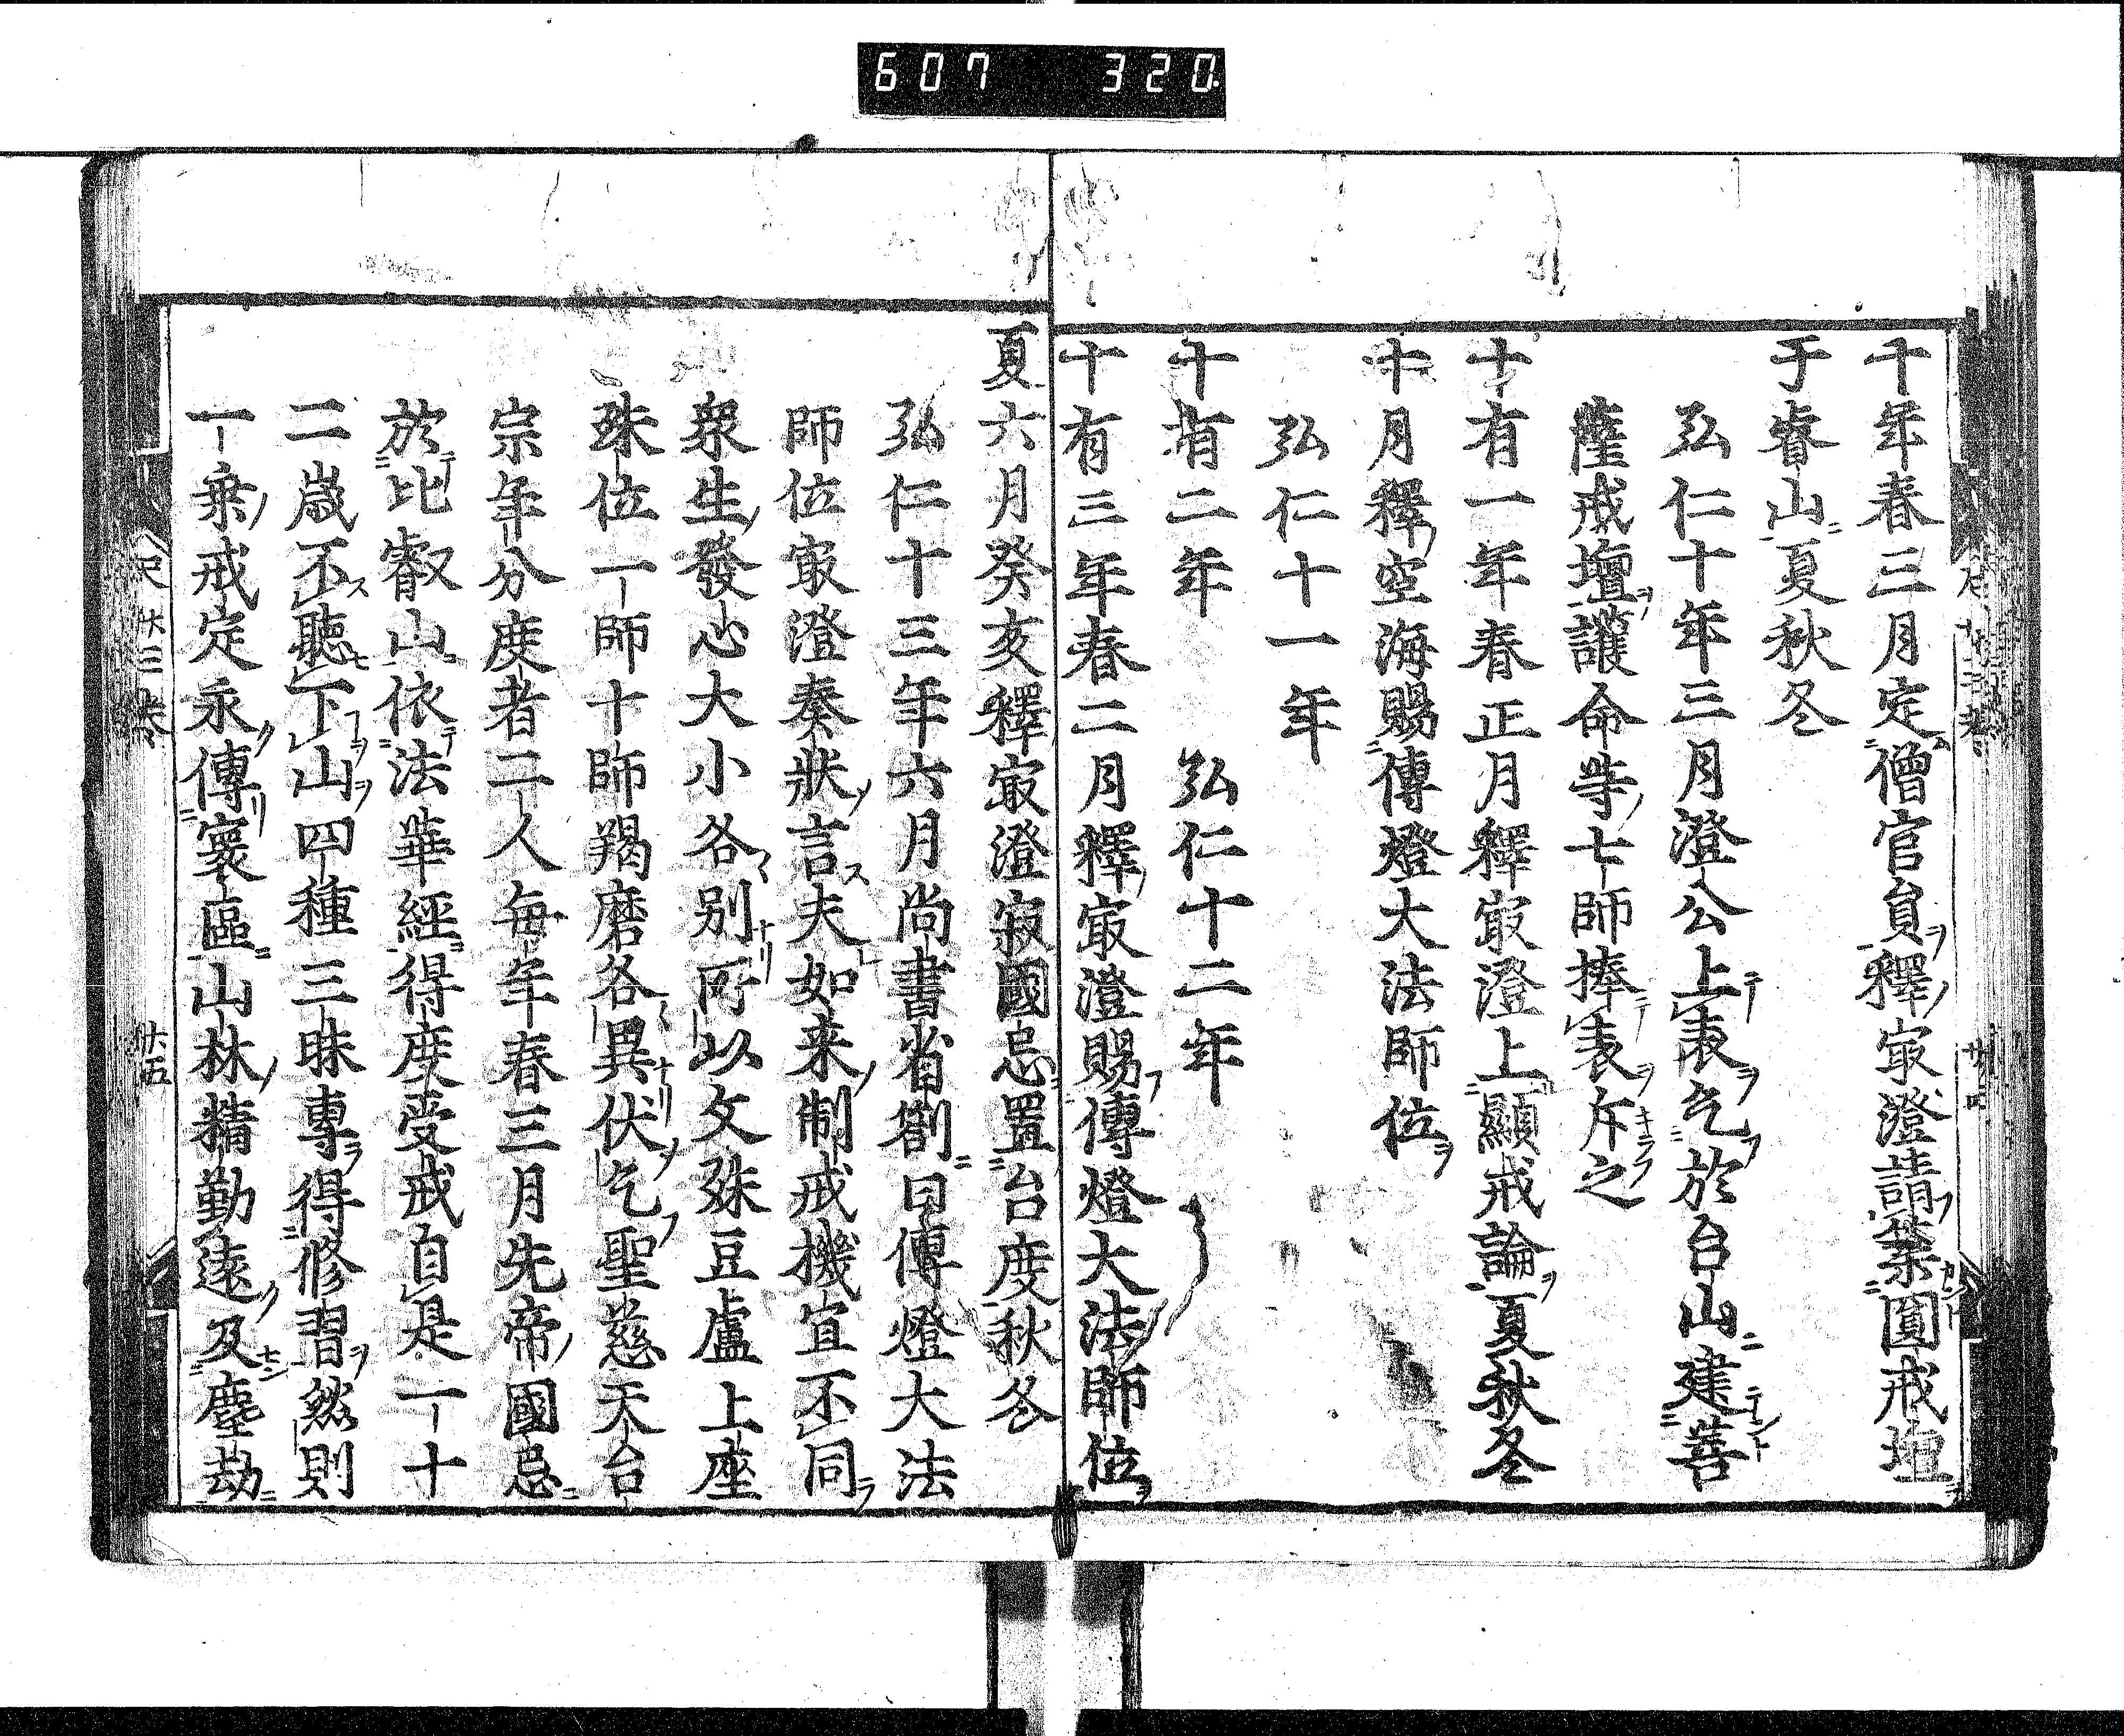 607 320.
十年春三月定僧官員釋冣澄請築圓戒壇
于睿山夏秋冬
弘仁十年三月澄公上表乞於台山建菩
薩戒壇護命等七師捧表斥之
十有一年春正月釋冣澄上顯戒論夏秋冬
十月釋空海賜傳燈大法師位
弘仁十一年
十有二年 弘仁十二年
十有三年春二月釋冣澄賜傳燈大法師位
夏六月癸亥釋冣澄寂國忌置台度秋冬
弘仁十三年六月尚書省劄曰傳燈大法
師位冣澄奏狀言夫如来制戒機宜不同
衆生發心大小各別所以文殊豆盧上座
殊位一師十師羯磨各異伏乞聖慈天台
宗年分度者二人毎年春三月先帝國忌
於比叡山依法華經得度受戒自是一十
二歳不聽下山四種三昧專得修習然則
一乗戒定永傳寰區山林精勤遠及塵劫